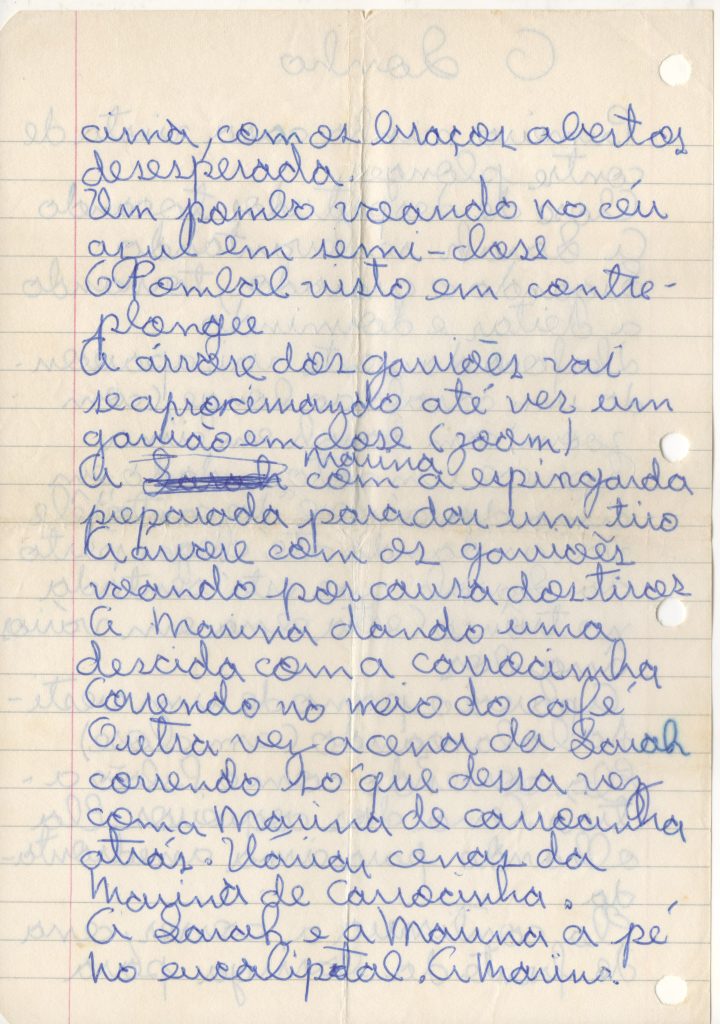 cima, com os braços abertos
desesperada.
Um pombo voando no céu
azul em semi-close
O Pombal visto em contre-
plongee
A árvore dos gaviões vai
se aproximando até ver um
gavião em close (zoom)
A Marina com a espingarda
preparada para dar um tiro
A arvore com os gaviões
voando por causa dos tiros
A Marina dando uma
descida com a carrocinha
Correndo no meio do café
Outra vez a cena da Sarah
correndo só que dessa vez
com a Marina de carrocinha
atrás. Várias cenas da
Marina de Carrocinha.
A Sarah e a Marina à pé
no eucaliptal. A Marina